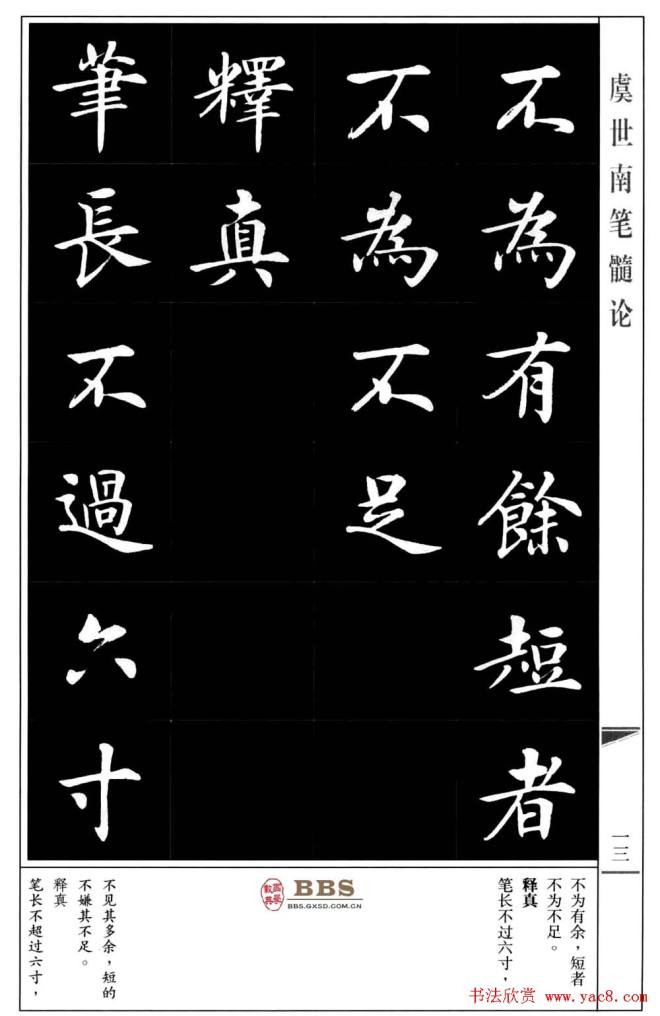 虞世南笔髓论
一三
不為有餘短者
不為不足
釋真
筆長不過六寸
不为有余，短者
不为不足。
释真
笔长不过六寸，
BBS
BBS.GXSD.COM.CN
不见其多余，短的
不嫌其不足。
释真
笔长不超过六寸，
书法欣赏 www.yac8.com